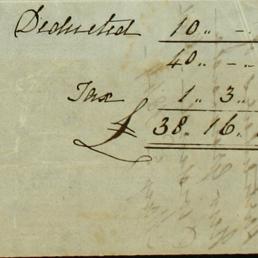 Deducted 10 " - "
40 " - " -
Tax 1 " 3 "
£ 38 " 16 "